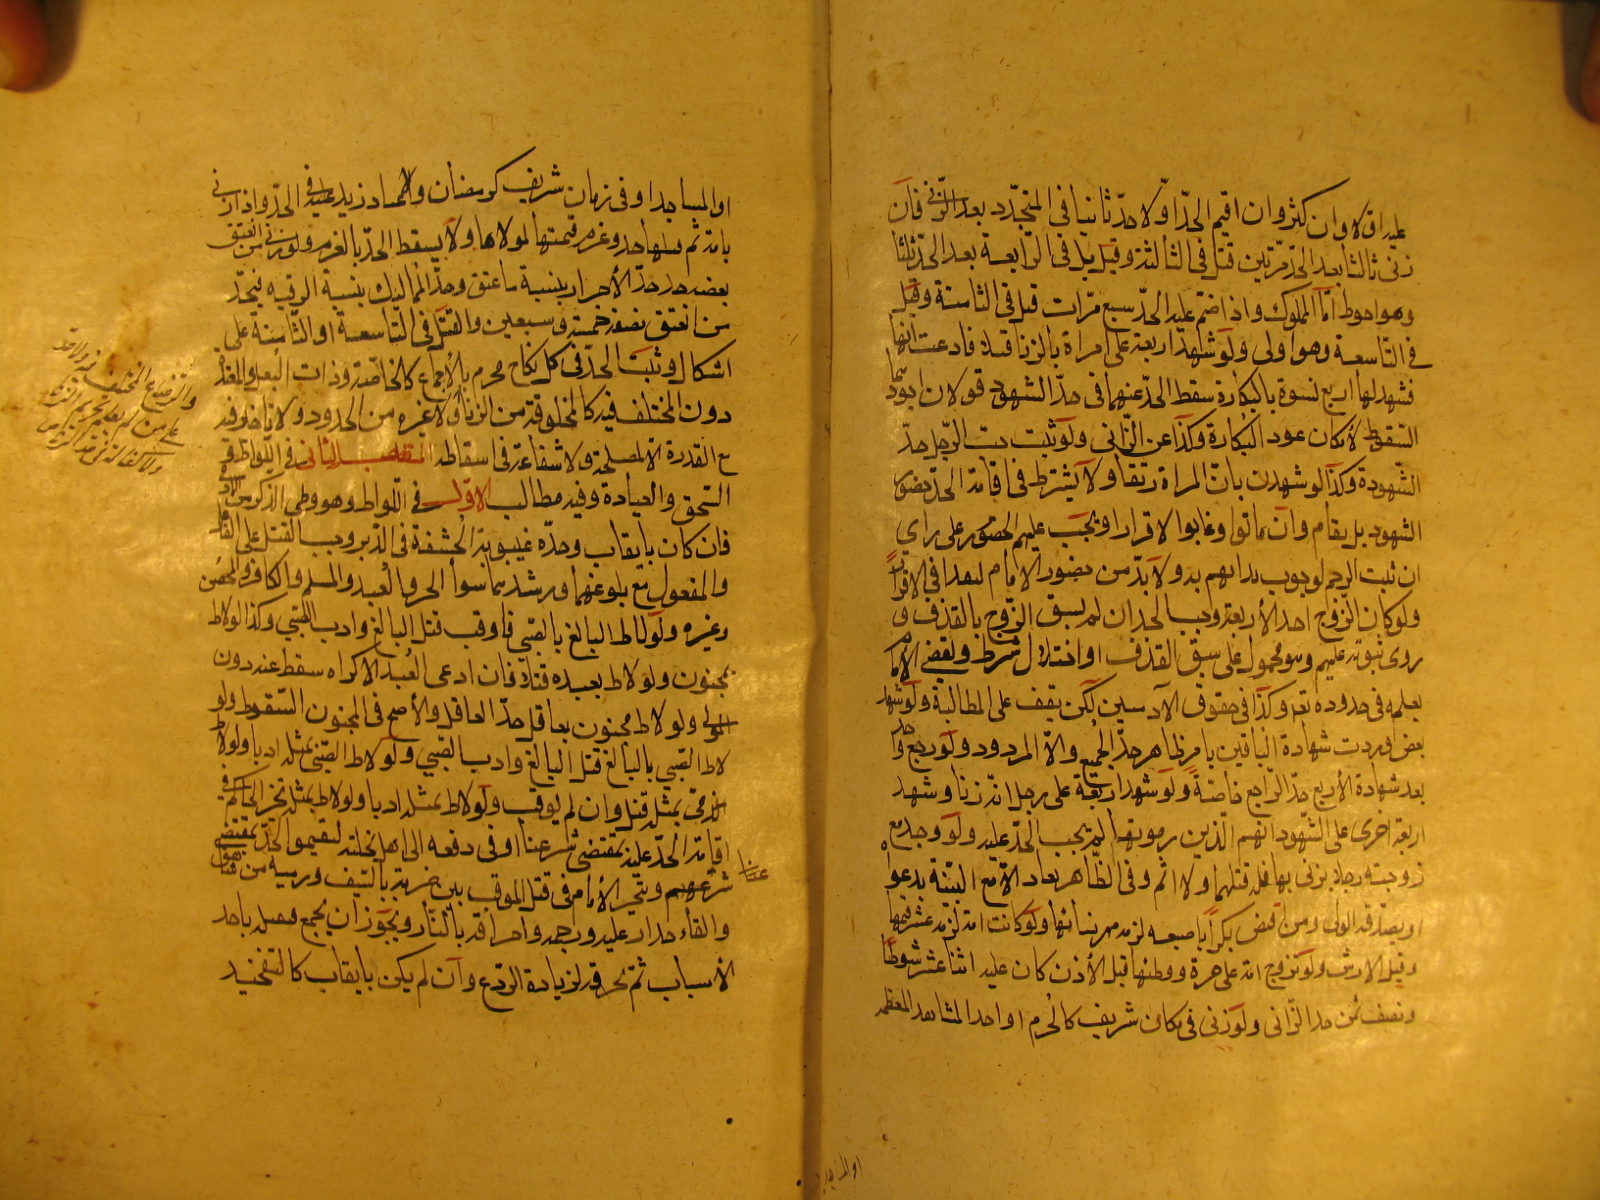 عليه راق لا وان كثر وان اقيم الحدّ اوّلا حدّ ثانيا فى المتجدّد بعد الزّنى فان
زنى ثالثا بعد الحدّ مرّتين قتل فى الثالثة وقيل بل فى الرّابعة بعد الحدّ ثلثا
وهو احوط امّا المملوك واذا اقيم عليه الحدّ سبع مرّات قتل فى الثامنة وقيل
فى التّاسعة وهو اولى ولو شهد اربعة على امراة بالزنا قبلا فادعت انها بكر
فشهد لها اربع نسوة بالبكارة سقط الحدّ عنهما فى حدّ الشهود قولان اجودهما
السّقوط لامكان عود البكارة وكذا عن الزّانى ولو ثبت جبّ الرّجل حدّ
الشّهود وكذا لو شهدن بانّ المراة رتقا ولا يشترط فى اقامة الحدّ حضور
الشهود بل يقام وان ماتوا وغابوا لا فرارا ويجب عليهم الحضور على راى
ان ثبت الرجم لوجوب بداتهم به ولا بدّ من حضور الامام ليبدا فى الاقرار
ولو كان الزّوج احد الأربعة وجب الحد ان لم يسبق الزّوج بالقذف و
روى ثبوته عليهم وهو محمول على سبق القذف او اختلال شرط ويقضى الامام
بعلمه فى حدوده تعه وكذا فى حقوق الآدميين لكن يقف على المطالبة ولو شهد
بعض وردت شهادة الباقين بامر ظاهر حدّ الجميع والّا المردود ولو رجع واحد
بعد شهادة الأربع حدّ الرّاجع خاصّة ولو شهد اربعة على رجل انّه زنا وشهد
اربعة اخرى على الشّهود انهم الّذين زنوا بها لم يجب الحدّ عليه ولو وجد مع
زوجته رجلا يزنى بها فله قتلهما ولا اثم وفى الظّاهر يقاد الّا مع البيّنة بدعواه
او يصدّقه الولى ومن افتض بكرا باصبعه لزمه مهر نسائها ولو كانت امة لزمه عشر قيمتها
وقيل الارش ولو تزوج امة على حرة ووطئها قبل الأذن كان عليه اثنا عشر سوطا
ونصف ثمن حد الزّانى ولو زنى فى مكان شريف كالحرم او احد المشاهد المعظمة
او المساجد
او المساجد او فى زمان شريف كرمضان والاعياد زيد عليه فى الحدّ واذا زنى
بامة ثم قتلها حد وغرم قيمتها لمولاها ولا يسقط الحدّ بالغرم ولو زنى من انعتق
بعضه حد حدّ الأحرار بنسبة ما عتق وحدّ المماليك بنسبة الرقيه فيحدّ
من انعتق نصفه خمسة وسبعين والقتل فى التاسعة او الثّامنة على
اشكال ويثبت الحدّ فى كل نكاح محرم بالاجماع كالخامسة وذات البعل والمعتدة
دون المختلف فيه كالمخلوقة من الزنا ولا غيره من الحدود ولا تاخير فيه
مع القدرة الّا لمصلحة ولا شفاعة فى اسقاطه المقصد الثانى فى اللّواط و
السّحق والقيادة وفيه مطالب الاوّل فى اللّواط وهو وطى الذكر من الآدمى
فان كان بايقاب وحدّه غيبوبة الحشفة فى الدّبر وجب القتل على الفاعل
والمفعول مع بلوغهما ورشدهما سواء الحر والعبد والمسلم والكافر والمحصن
وغيره ولو لاط البالغ بالصّبى فاوقب قتل البالغ وادب الصّبي وكذا لو لاط
بمجنون ولو لاط بعبده قتلا فان ادعى العبد الاكراه سقط عنه دون
المولى ولو لاط مجنون بعاقل حدّ العاقل والأصح فى المجنون السّقوط ولو
لاط الصّبي بالبالغ قتل البالغ وادب الصّبي ولو لاط الصّبى بمثله ادبا ولو لاط
الذمّى بمثله قتل وان لم يوقب ولو لاط بمثله ادبا ولو لاط بمثله تخير الحاكم فى
اقامة الحدّ عليه بمقتضى شرعنا او فى دفعه الى اهل نحلته ليقيموا الحدّ بمقتضى
شرعهم ويتخير الأمام فى قتل الموقب بين ضربه بالسّيف ورميه من شاهق
والقاء جدار عليه ورجمه واحراقه بالنّار ويجوز ان يجمع فيصل باحد
الأسباب ثم يحرقه لزيادة الرّدع وان لم يكن بايقاب كالتفخيذ
والرضاع المختلف فيه ولاحد
على من لم يعلم تحريم الزنا